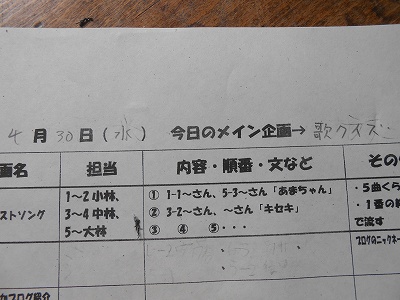 4月30日(水) 今日のメイン企画→歌クイズ
画名 担当 内容・順番・文など その
ストソング 1～2小林、 ① 1-1～さん、5-3～さん「あまちゃん」 ・5曲くら
3～4中林、 ② 3-2～さん、～さん「キセキ」 ・1番の
5～大林 ③ ④ ⑤・・・ で流す
ブログのニックネー
ブログ紹介